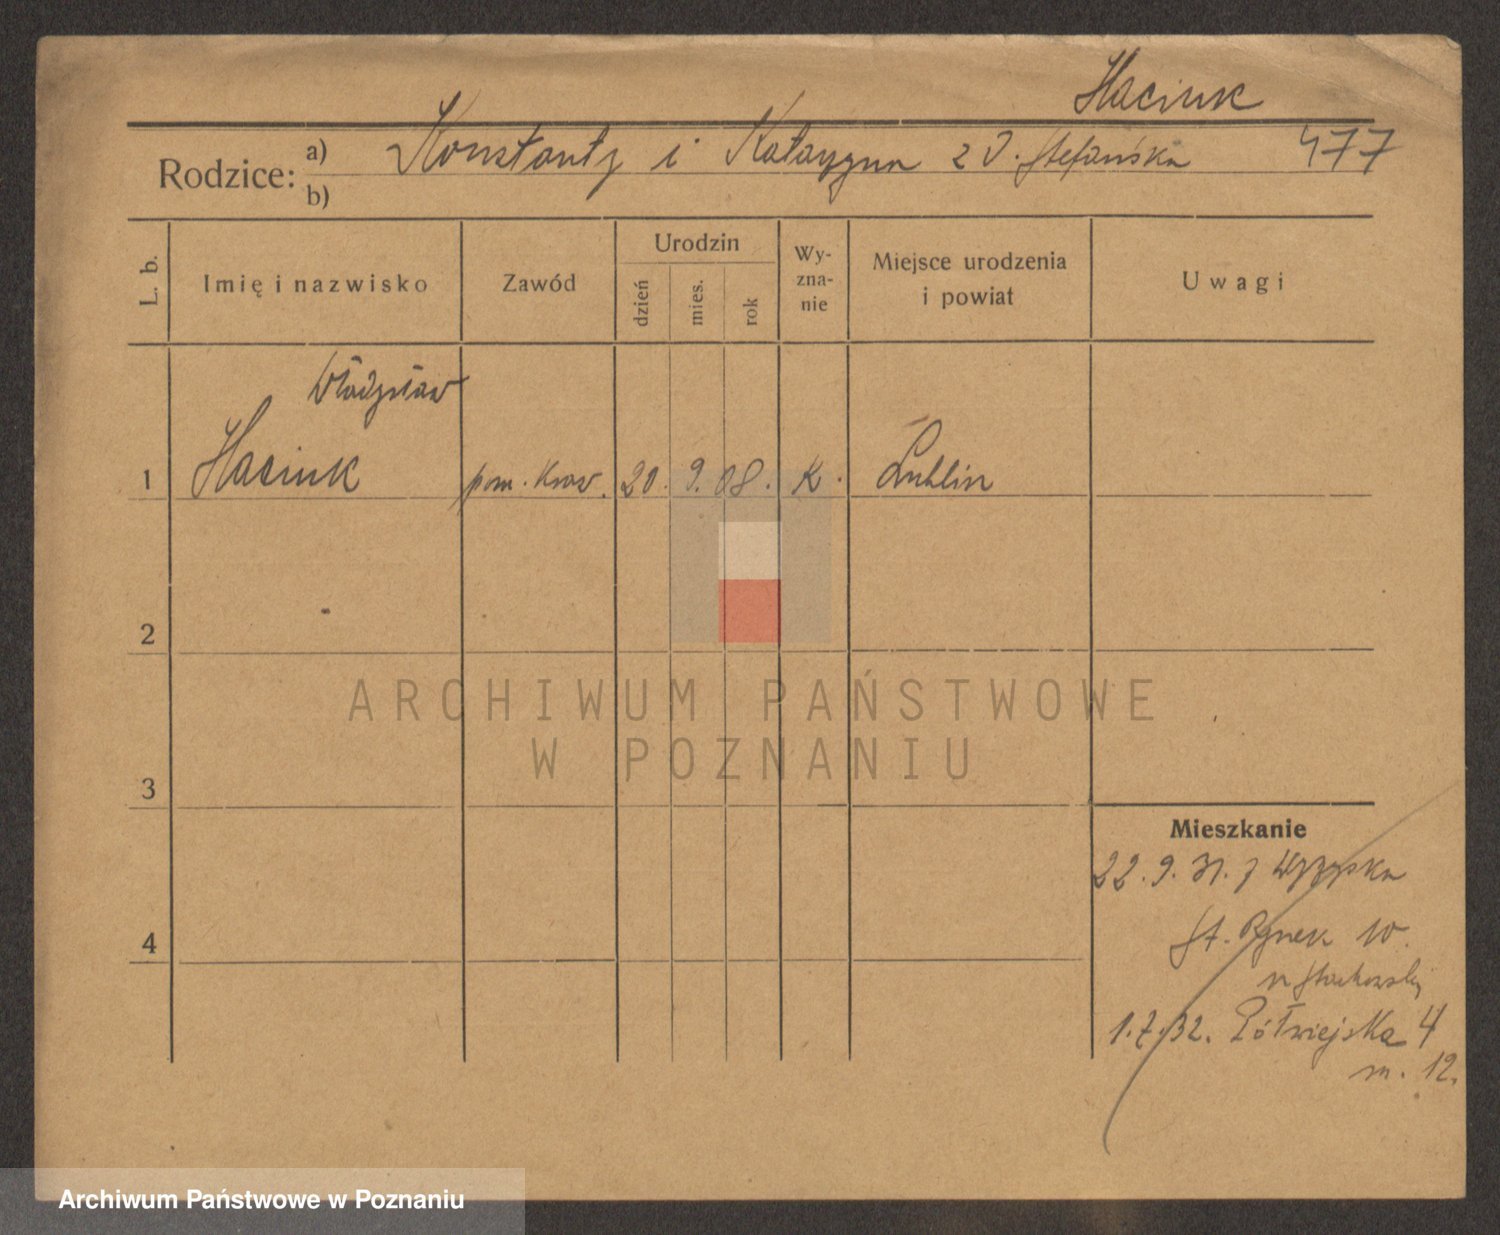 Haciuk
Rodzice: a) Konstanty i Katarzyna z d. Stefańska 477
b)
L. b. Imię i nazwisko Zawód Urodzin dzień mies. rok Wy-zna-nie Miejsce urodzenia i powiat Uwagi
Władysław
1 Haciuk pom. kraw. 20. 9. 08. K. Lublin
2
ARCHIWUM PAŃSTWOWE
W POZNANIU
3
Mieszkanie
22. 9. 31. z Wyrzyska
4
St. Rynek 10.
1. 7. 32. Półwiejska 4
m. 12.
Archiwum Państwowe w Poznaniu